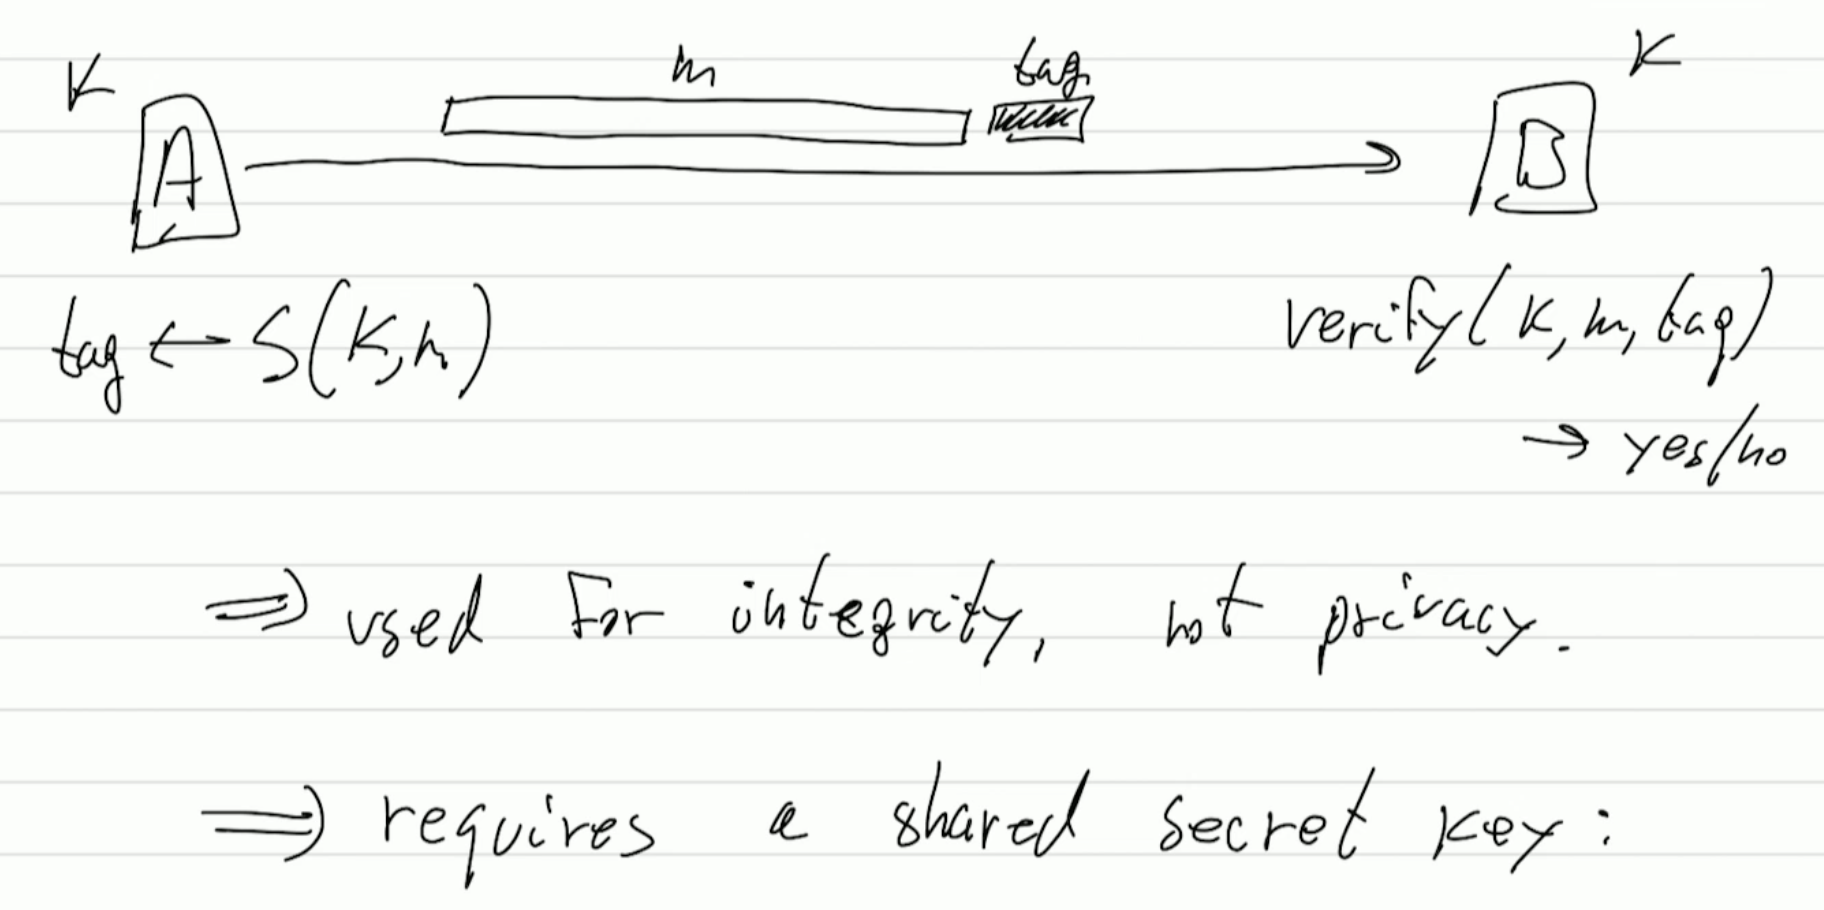 K m tag K
A B
tag ← S(K,m)
verify(K, m, tag)
→ yes/no
⇒ used for integrity, not privacy.
⇒ requires a shared secret key: